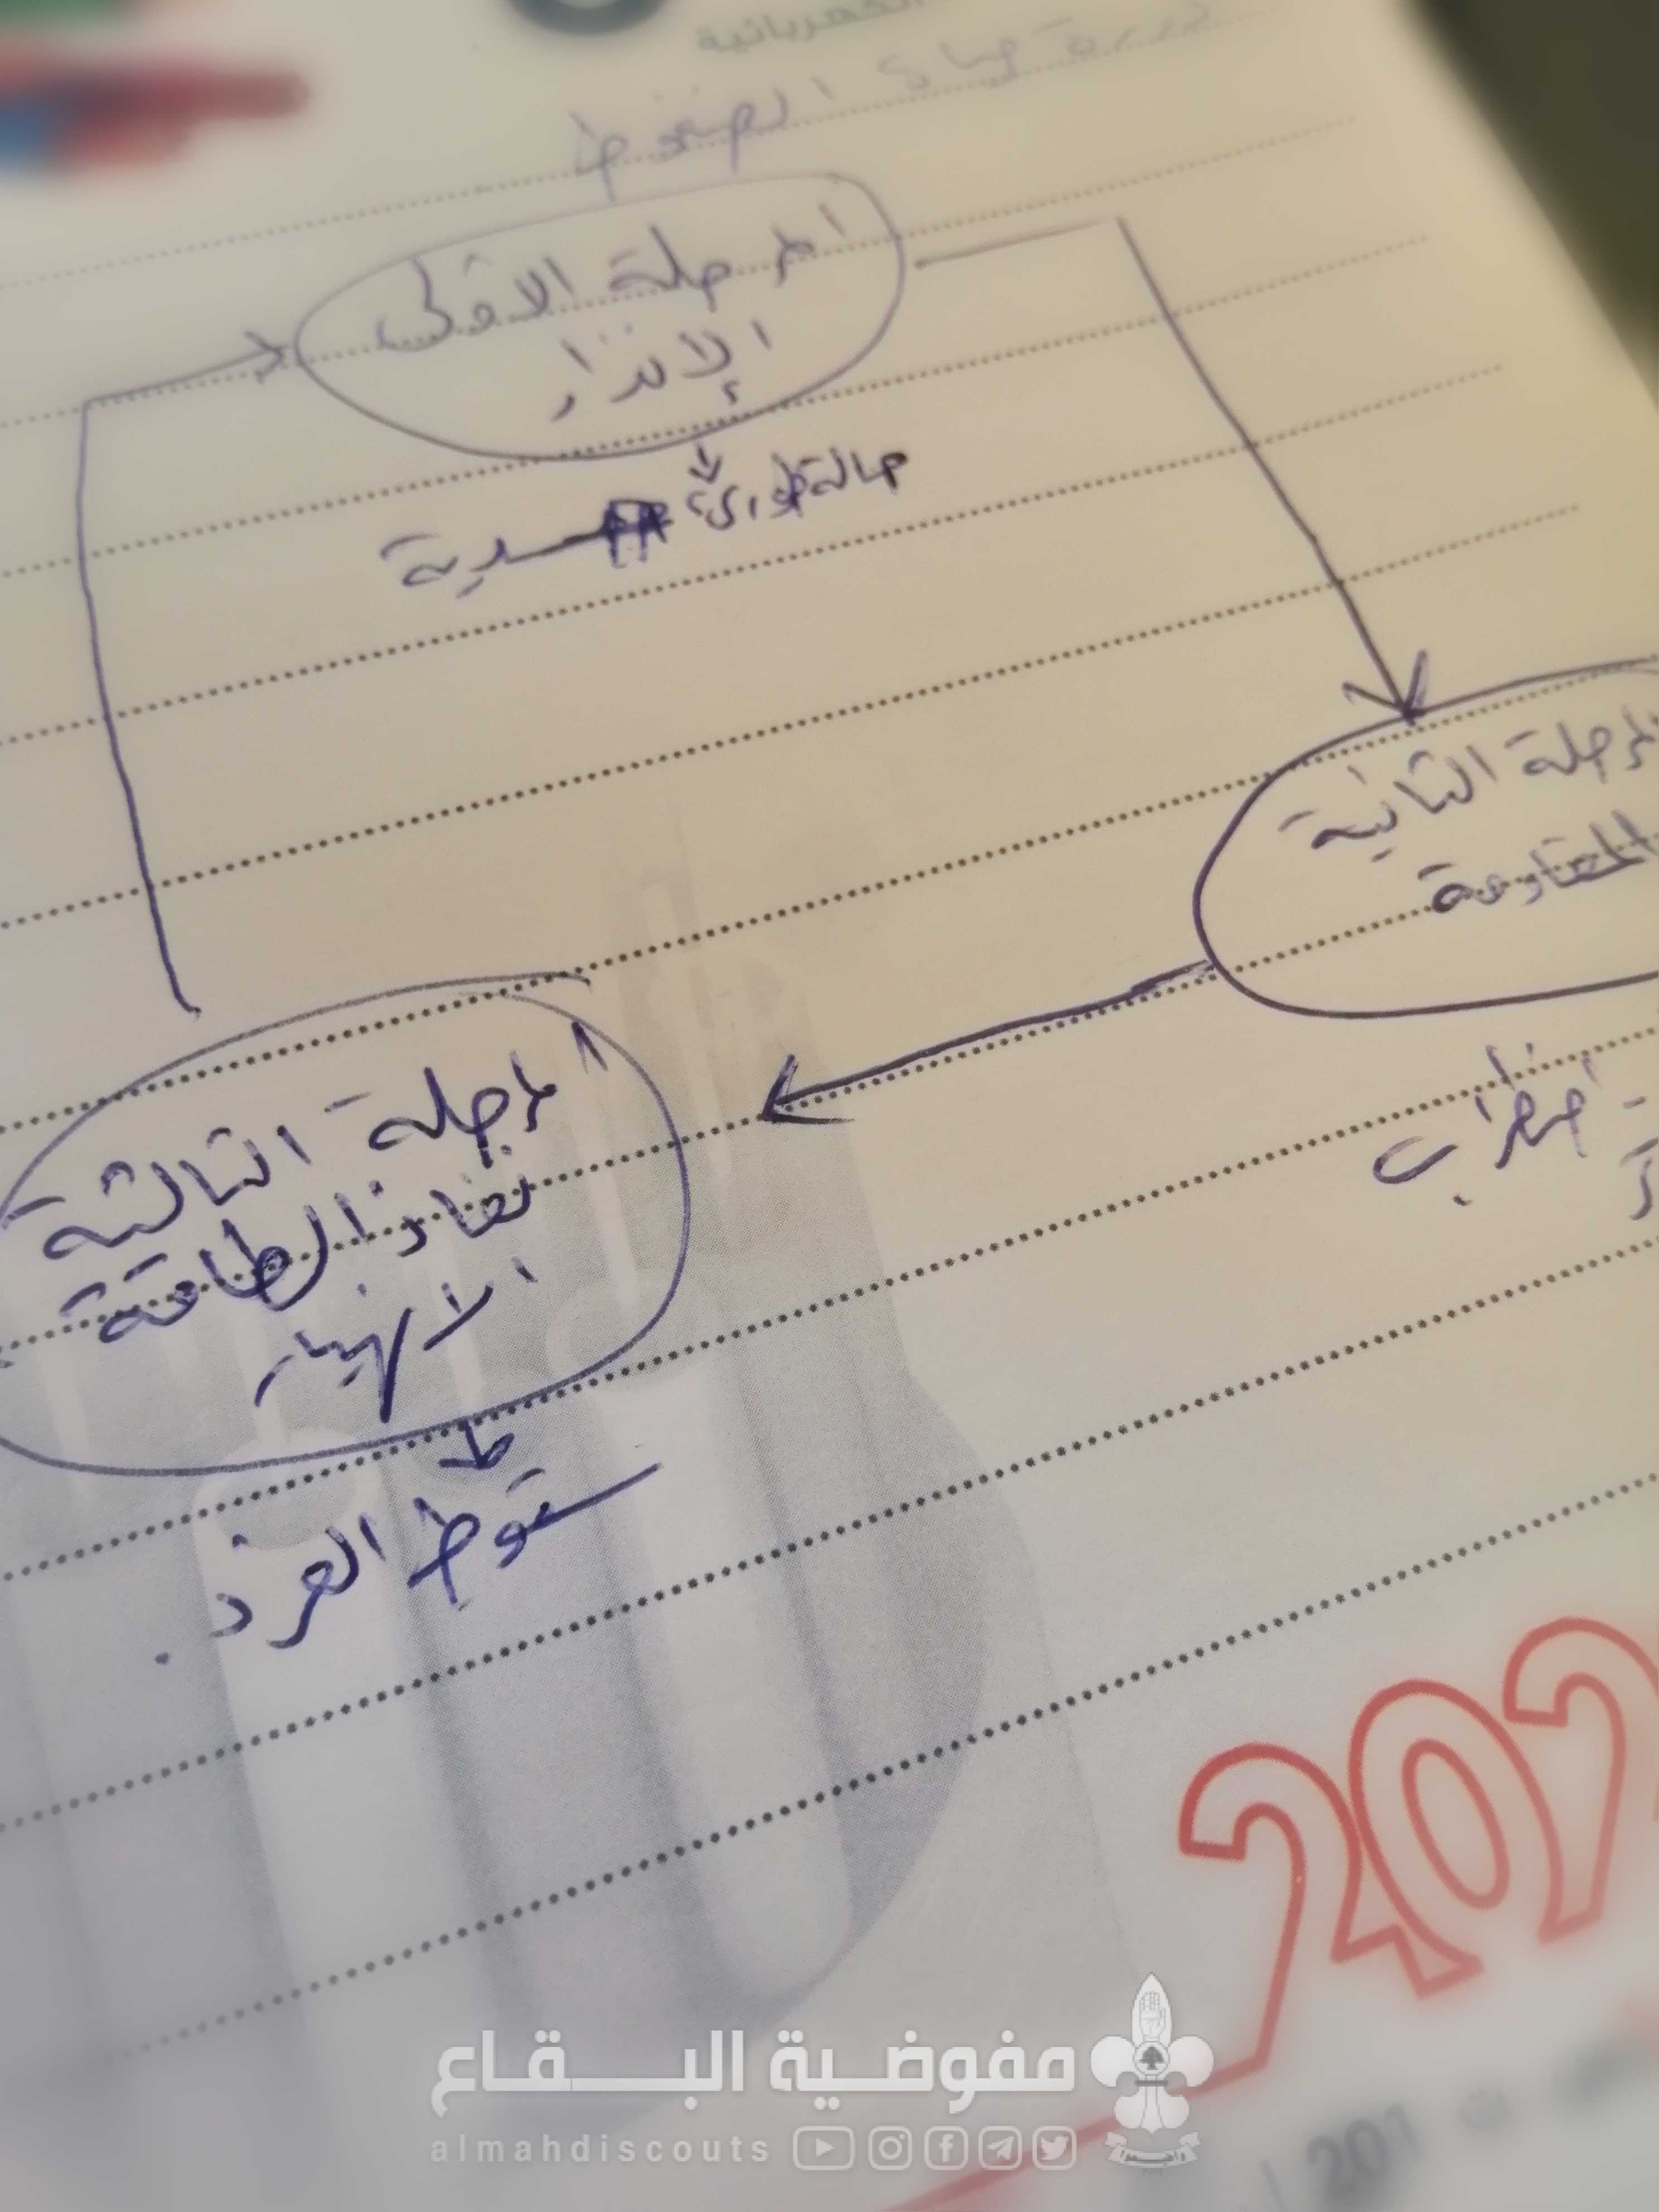 الكهربائية
دورة حياة الضغوط
المرحلة الاولى
الإنذار
حالة طوارئ
جسدية
المرحلة الثانية
المقاومة
اضطراب
المرحلة الثالثة
نفاذ الطاقة
الانهيار
سقوط الفرد.
202
201
مفوضية البقاع
almahdiscouts